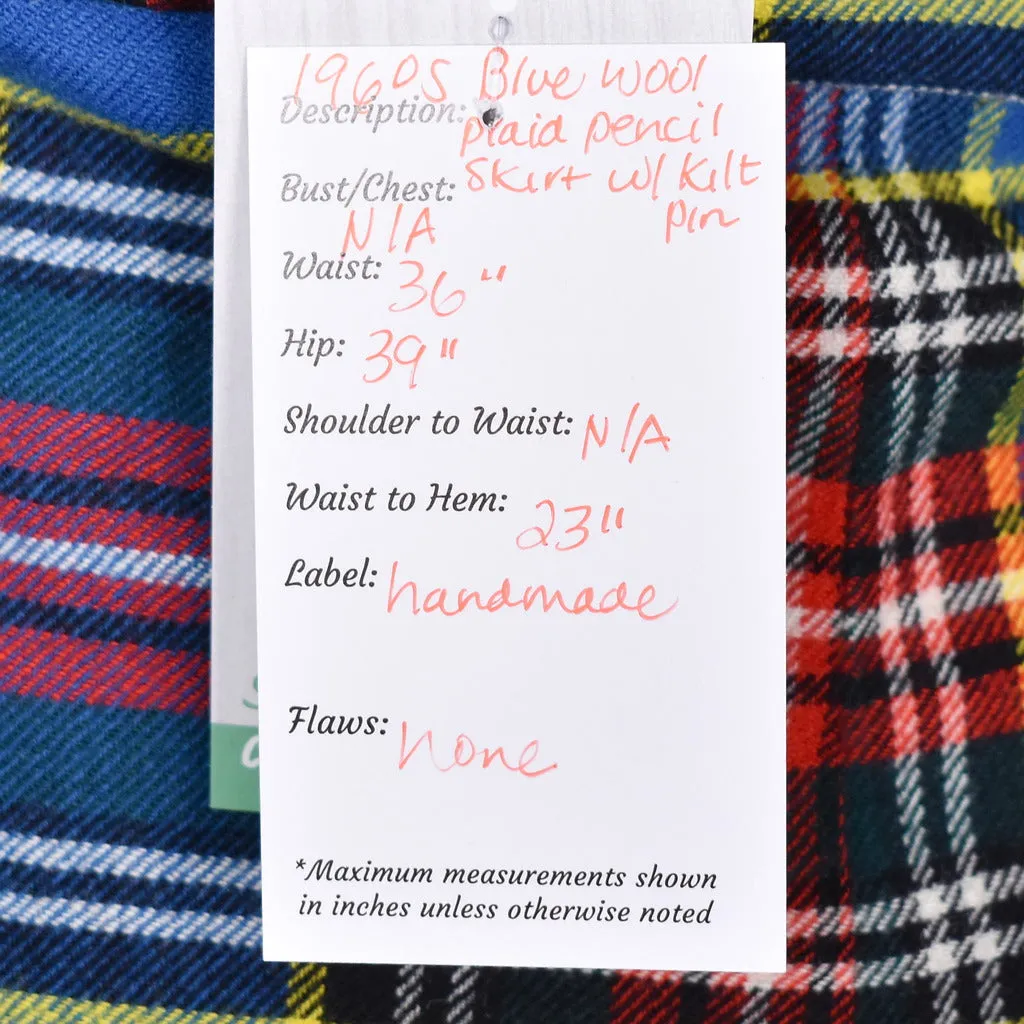 1960s Blue wool
Description: plaid pencil
Bust/Chest: skirt w/ kilt
N/A pin
Waist: 36"
Hip: 39"
Shoulder to Waist: N/A
Waist to Hem: 23"
Label: handmade
Flaws: none
*Maximum measurements shown
in inches unless otherwise noted